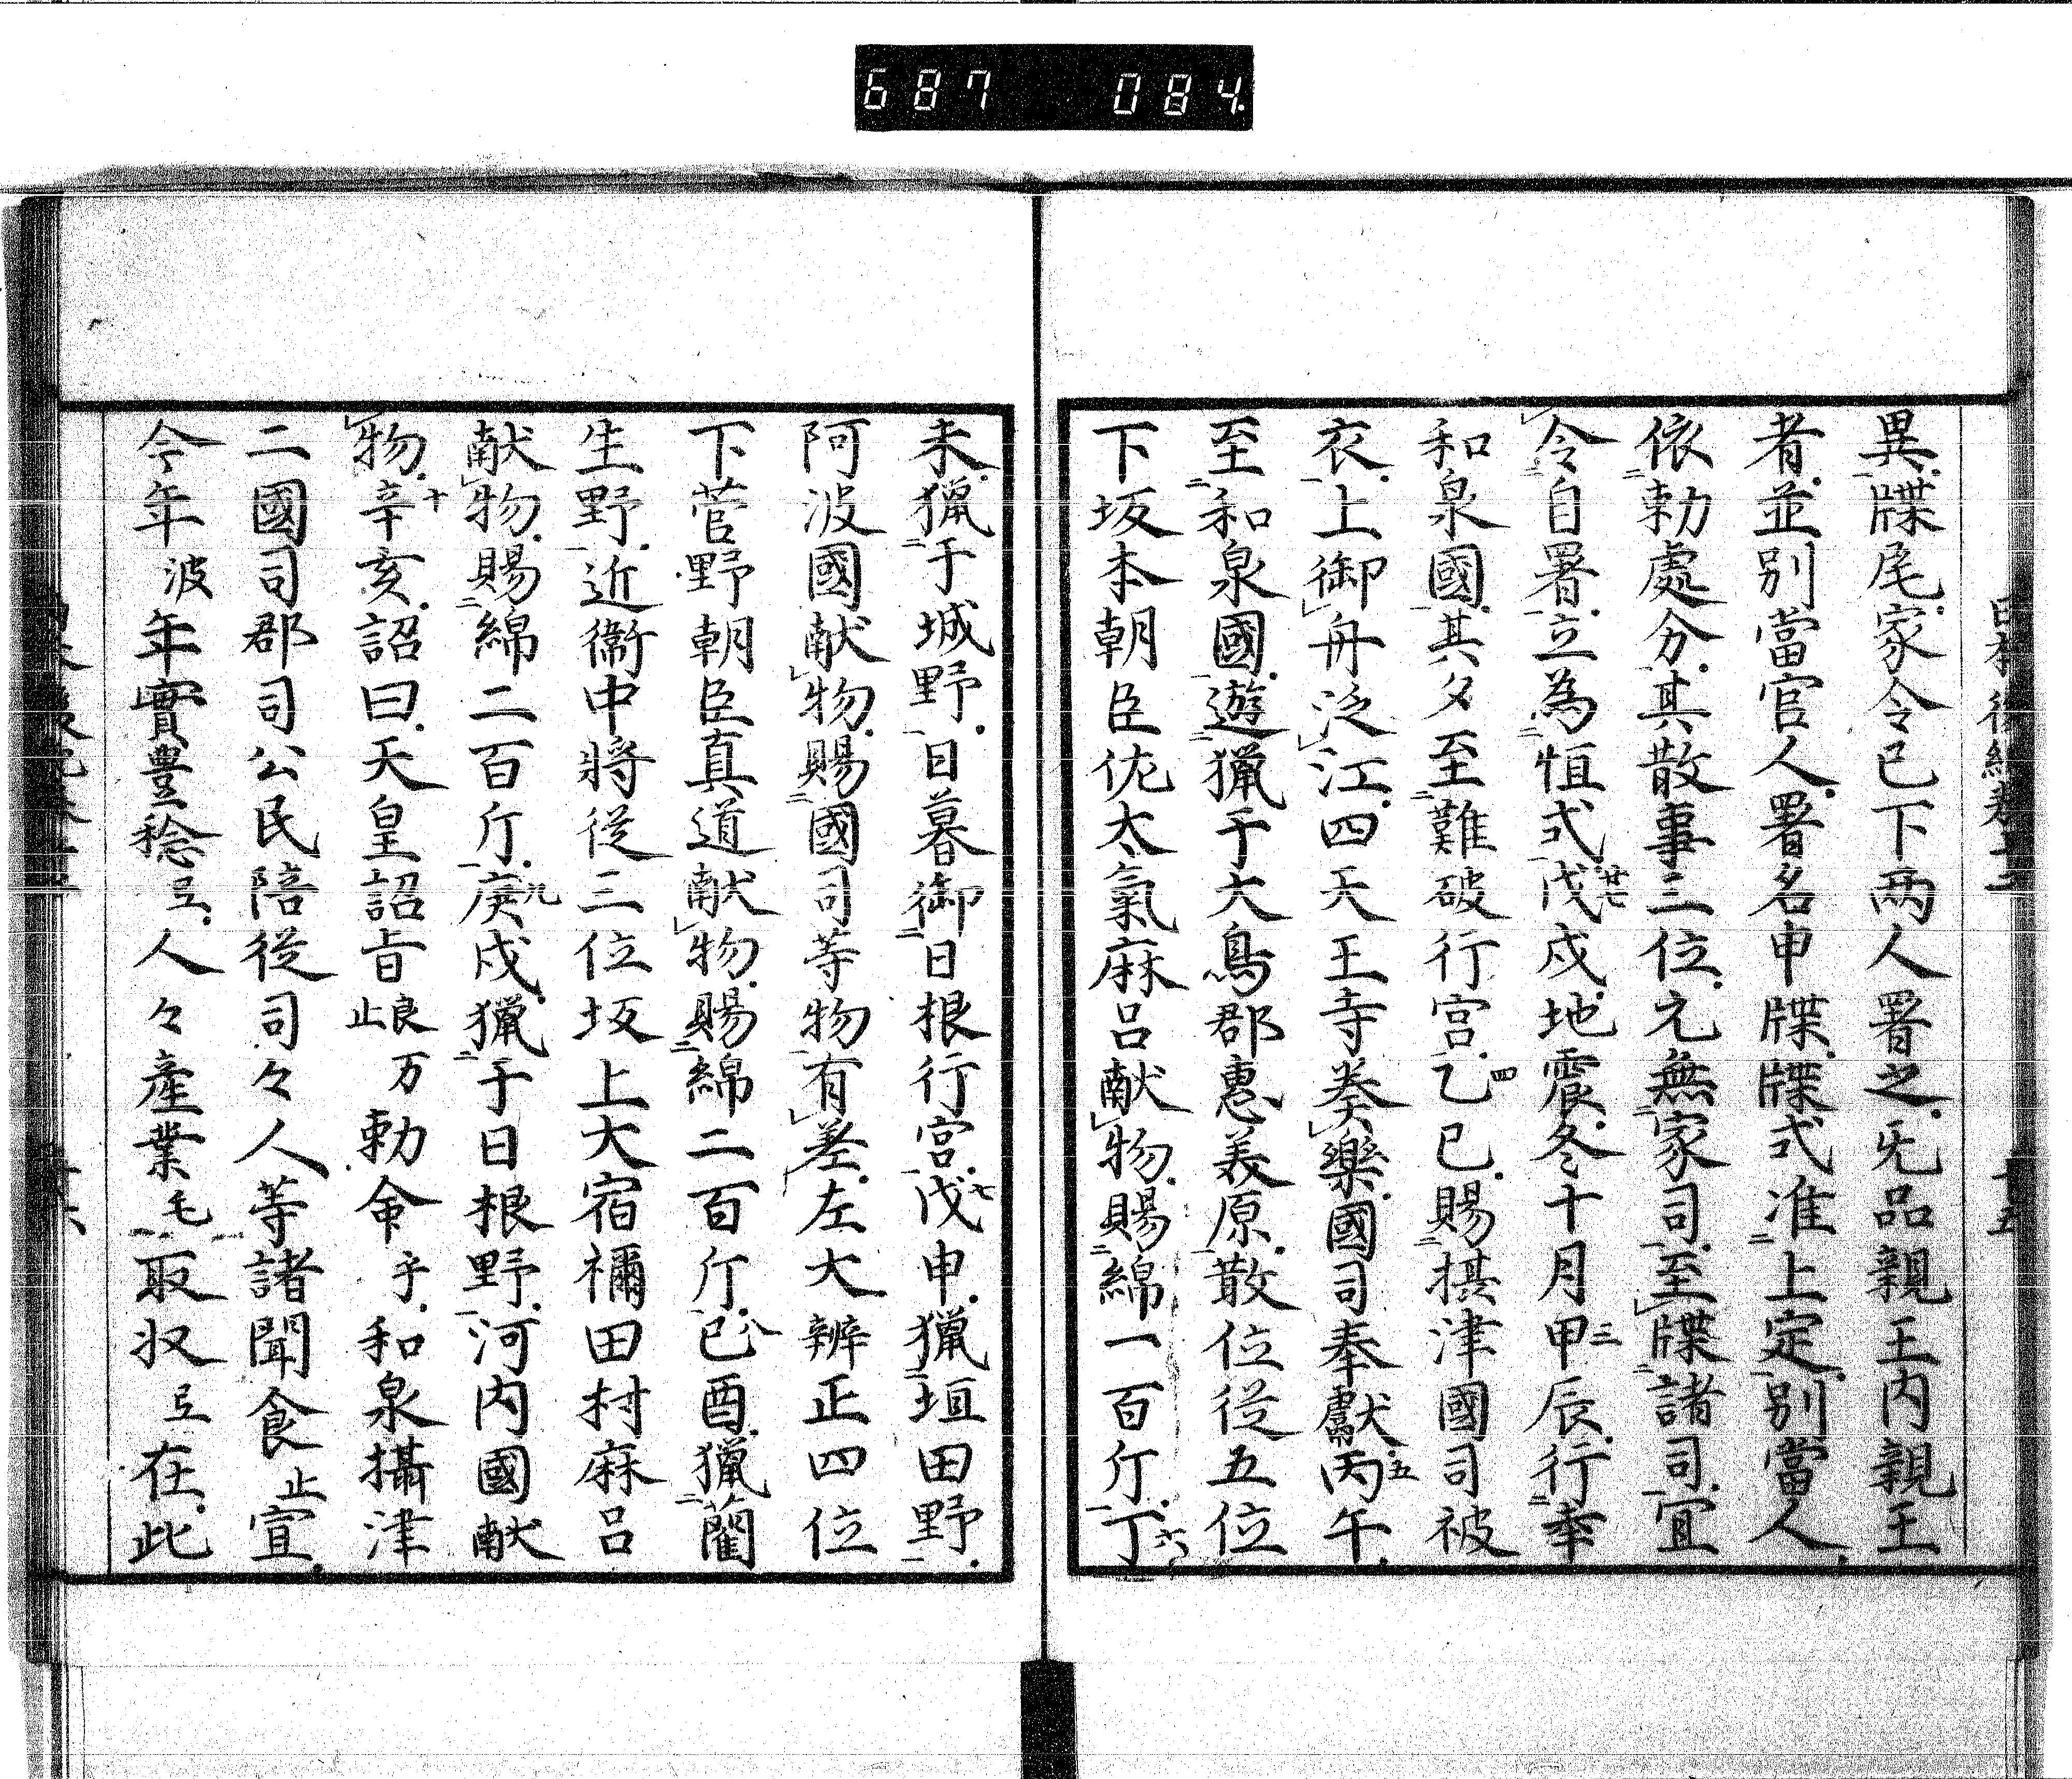 687 084
異牒尾家令已下両人署之无品親王内親王
者並別當官人署名申牒牒式准上定別當人
依勅處分其散事三位元無家司至牒諸司宜
令自署立為恒式戊戌地震冬十月甲辰行幸
和泉國其夕至難破行宮乙巳賜摂津國司被
衣上御舟泛江四天王寺奏樂國司奉獻丙午
至和泉國遊猟于大鳥郡惠美原散位従五位
下坂本朝臣佐太氣麻呂献物賜綿一百斤丁
未猟于城野日暮御日根行宮戊申猟垣田野
阿波國献物賜國司等物有差左大辨正四位
下菅野朝臣真道献物賜綿二百斤己酉猟藺
生野近衛中将従三位坂上大宿禰田村麻呂
献物賜綿二百斤庚戌猟于日根野河内國献
物辛亥詔曰天皇詔旨良止万勅命乎和泉攝津
二國司郡司公民陪従司々人等諸聞食止宣
今年波年實豊稔弖人々産業毛取収弖在此